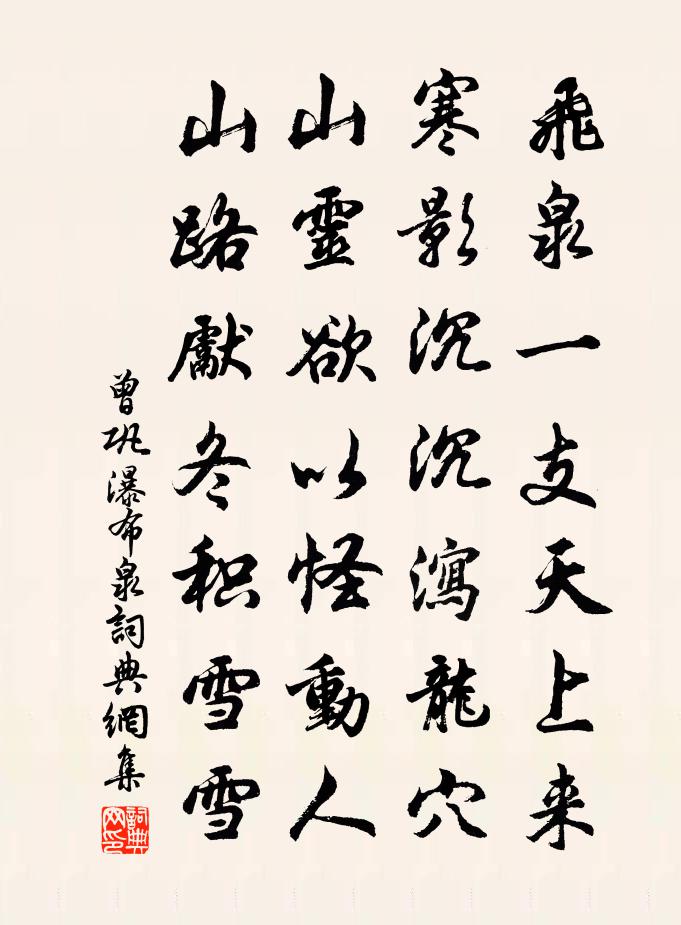 飛泉一支天上来
寒影沉沉瀉龍穴
山靈欲以怪動人
山路獻冬积雪雪
曾巩瀑布泉詞典網集
詞典网印